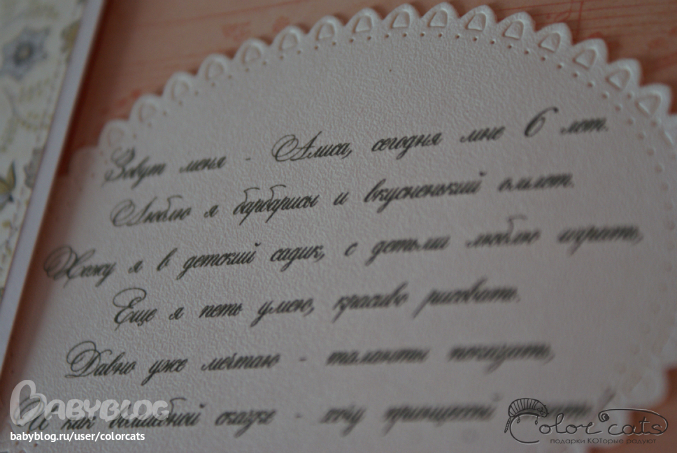 Зовут меня - Алиса, сегодня мне 6 лет.
Люблю я барбарисы и вкусненький омлет.
Хожу я в детский садик, с детьми люблю играть,
Еще я петь умею, красиво рисовать.
Давно уже мечтаю - таланты показать,
И как волшебной сказке - хочу принцессой
BABYBLOG
babyblog.ru/user/colorcats
Color cats
подарки КОТорые радуют